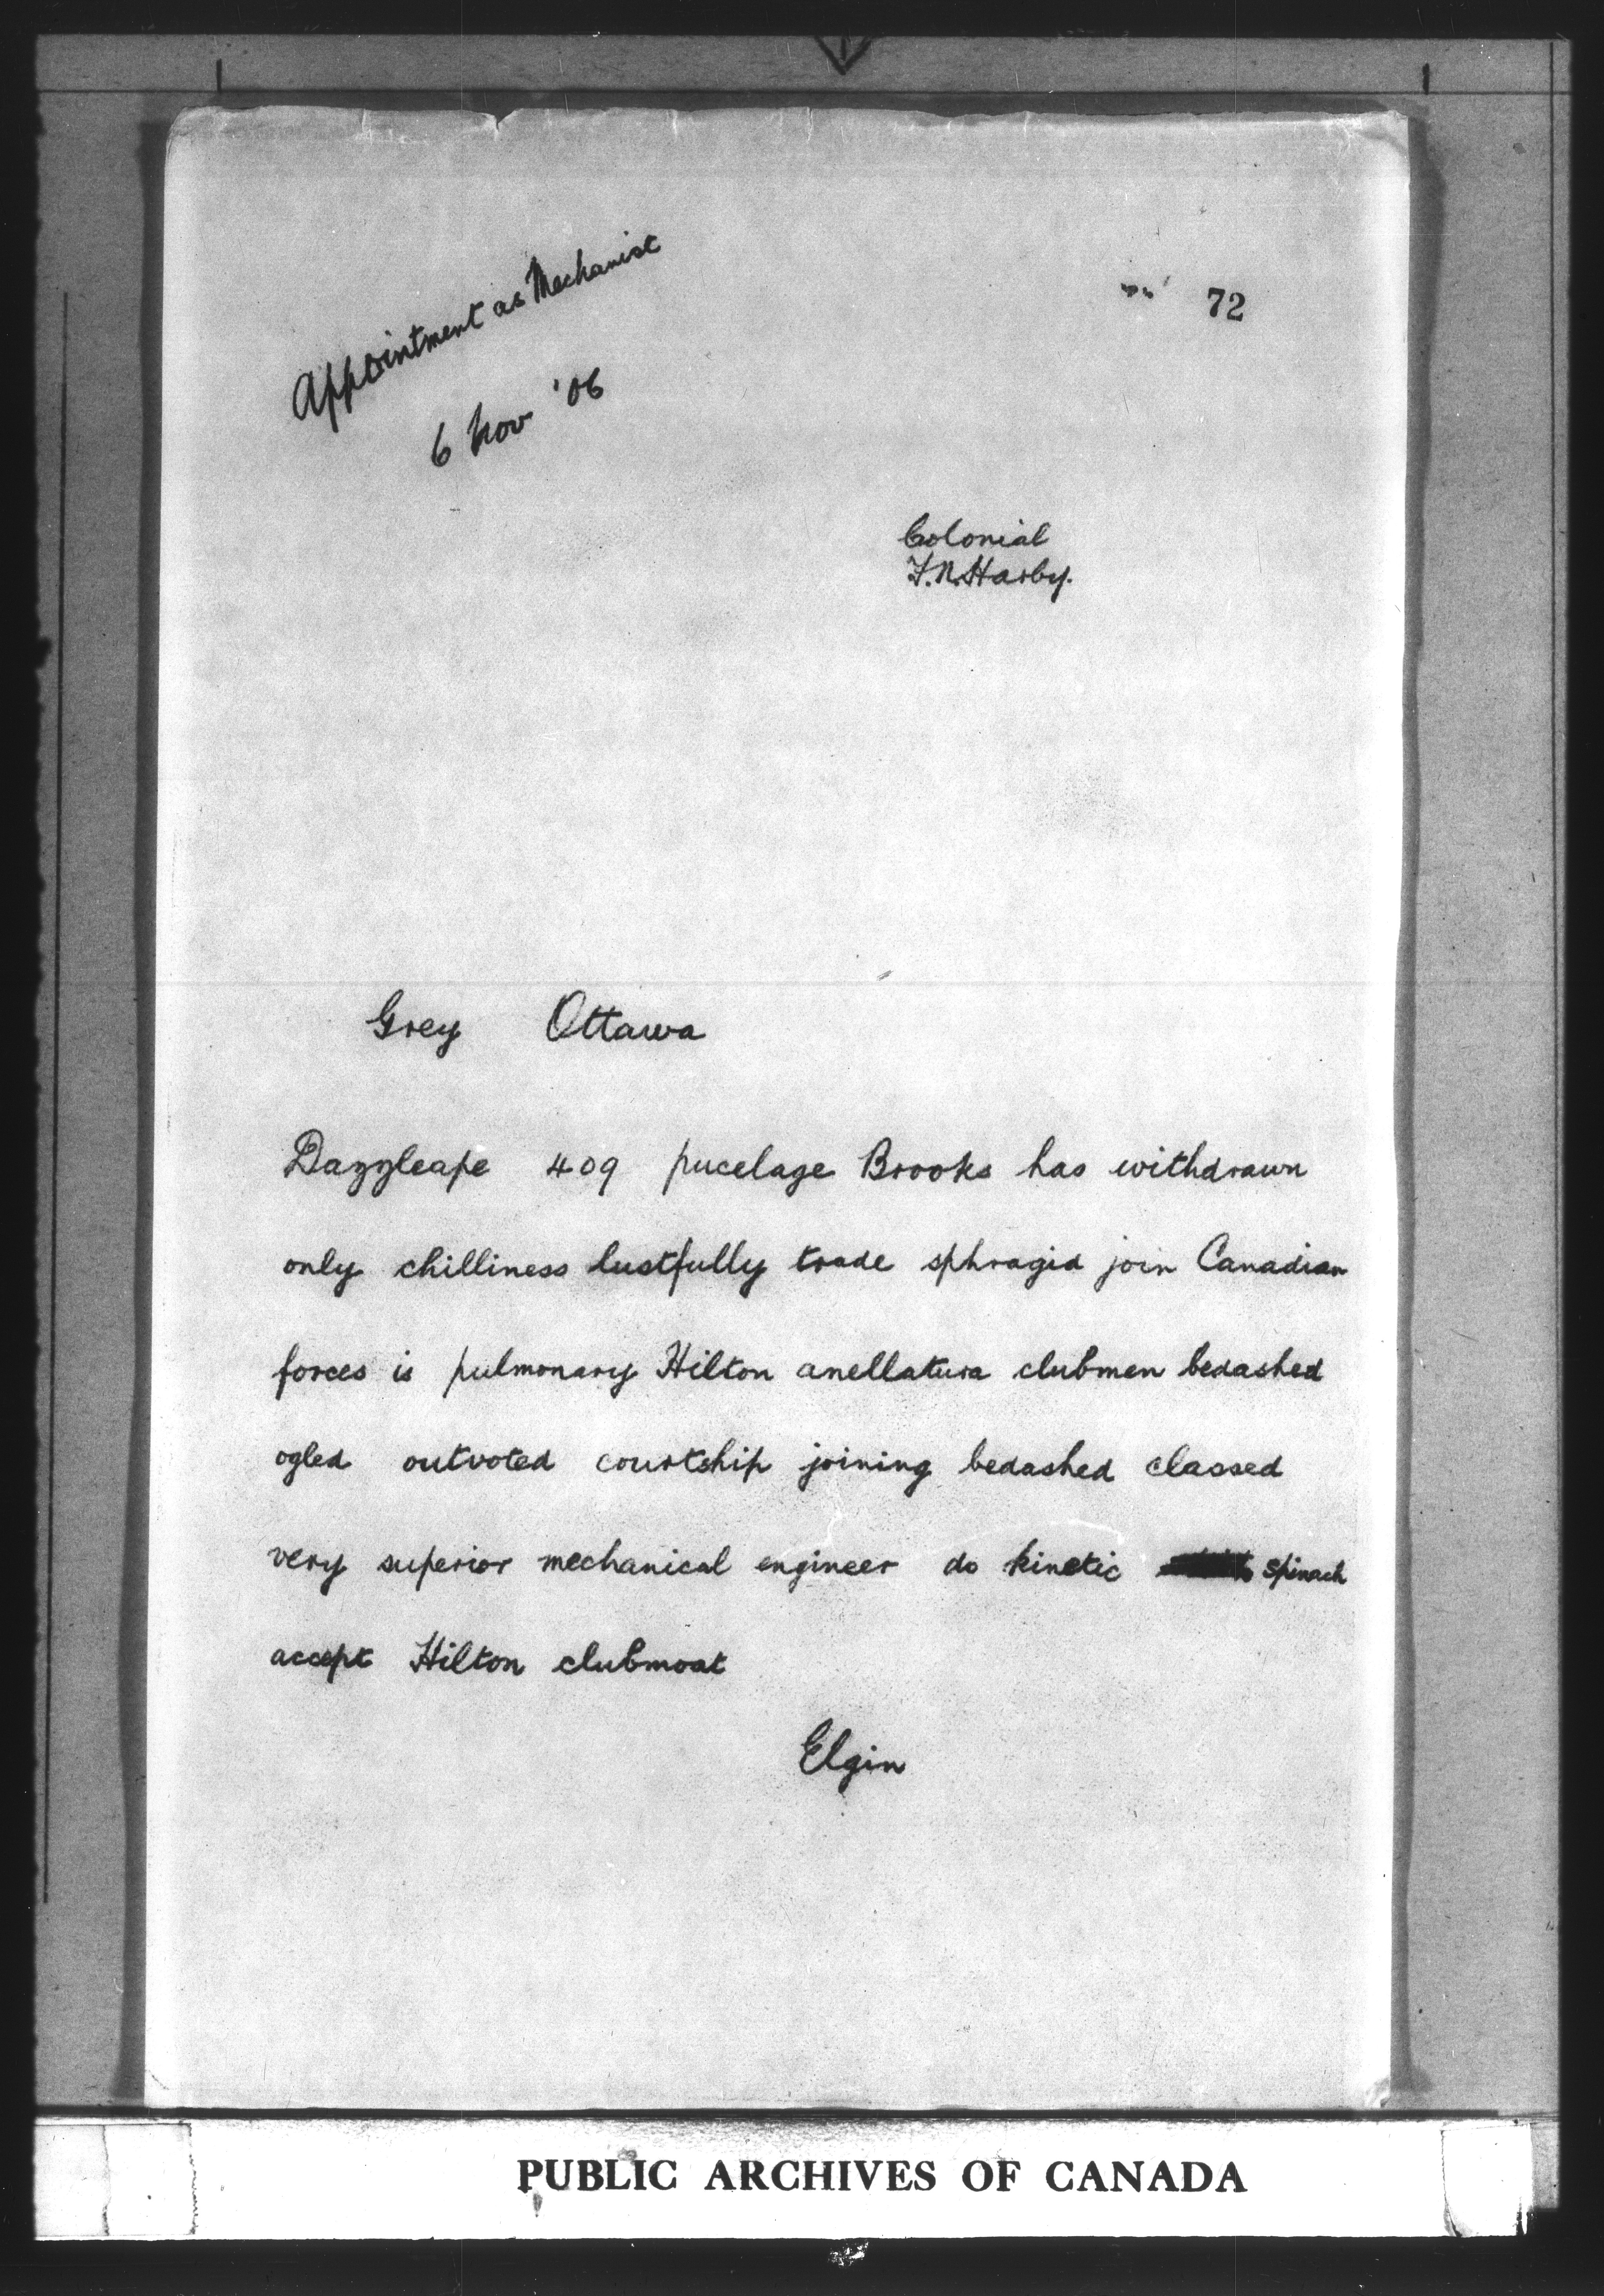 Appointment as Mechanist
6 Nov '06
72
Colonial
F.N. Harby.
Grey Ottawa
Dazzleape 409 pucelage Brooks has withdrawn
only chilliness lustfully trade sphragid join Canadian
forces is pulmonary Hilton anellatura clubmen bedashed
ogled outvoted courtship joining bedashed classed
very superior mechanical engineer do kinetic spinach
accept Hilton clubmoat
Elgin
PUBLIC ARCHIVES OF CANADA